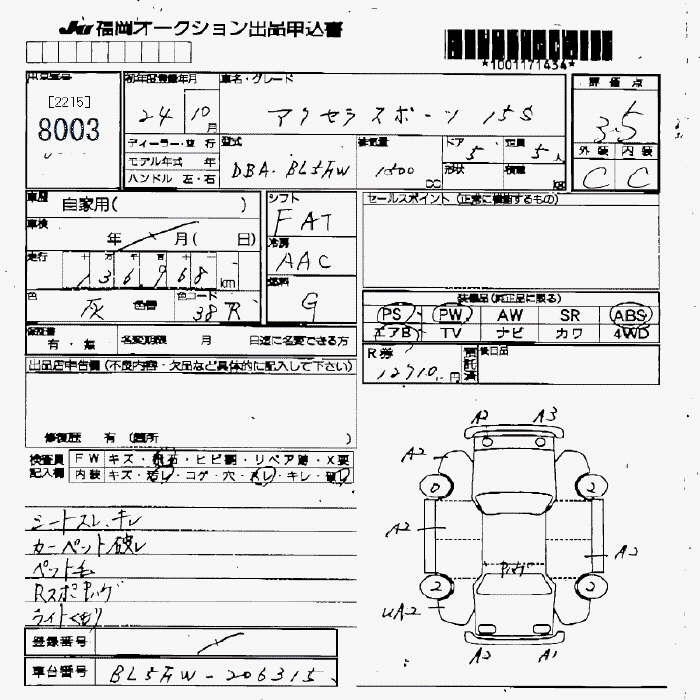 JU 福岡オークション出品申込書
*1001171434*
出品番号
[2215]
8003
初年度登録年月
24年 10月
車名・グレード
アクセラスポーツ 15S
評価点
3.5
外装 内装
C C
ディーラー・並行
モデル年式 年
ハンドル 左・右
型式
DBA-BL5FW
排気量
1500 cc
ドア
5
形状
定員
5人
積載
kg
車歴
自家用( )
車検
年 月( 日)
走行
十 万 千 百 十 一
136968 km
色
灰
色替
色コード
38R
シフト
FAT
冷房
AAC
燃料
G
セールスポイント (正常に機能するもの)
装備品(純正品に限る)
PS PW AW SR ABS
エアB TV ナビ カワ 4WD
R券
12710 円
預託済
後日品
保証書
有・無
名変期限 月 日迄に名変できる方
出品店申告欄(不良内容・欠品など具体的に記入して下さい)
修復歴 有 (箇所 )
検査員記入欄
FW キズ・飛石・ヒビ割・リペア跡・X要
内装 キズ・汚レ・コゲ・穴・スレ・キレ・破レ
シートスレ、キレ
カーペット破レ
ペット毛
Rスポキング
ライトくもり
登録番号
車台番号 BL5FW-206315
A2 A3
A2
0 2
A2
A2
2 2
UA2
A2 A1